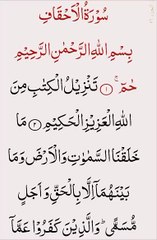 سُوْرَةُ الْاَحْقَافِ
بِسْمِ اللّٰهِ الرَّحْمٰنِ الرَّحِيْمِ
حٰمٓ ۚ ﴿۱﴾ تَنْزِيْلُ الْكِتٰبِ مِنَ
اللّٰهِ الْعَزِيْزِ الْحَكِيْمِ ﴿۲﴾ مَا
خَلَقْنَا السَّمٰوٰتِ وَالْاَرْضَ وَمَا
بَيْنَهُمَاۤ اِلَّا بِالْحَقِّ وَاَجَلٍ
مُّسَمًّى ؕ وَالَّذِيْنَ كَفَرُوْا عَمَّاۤ